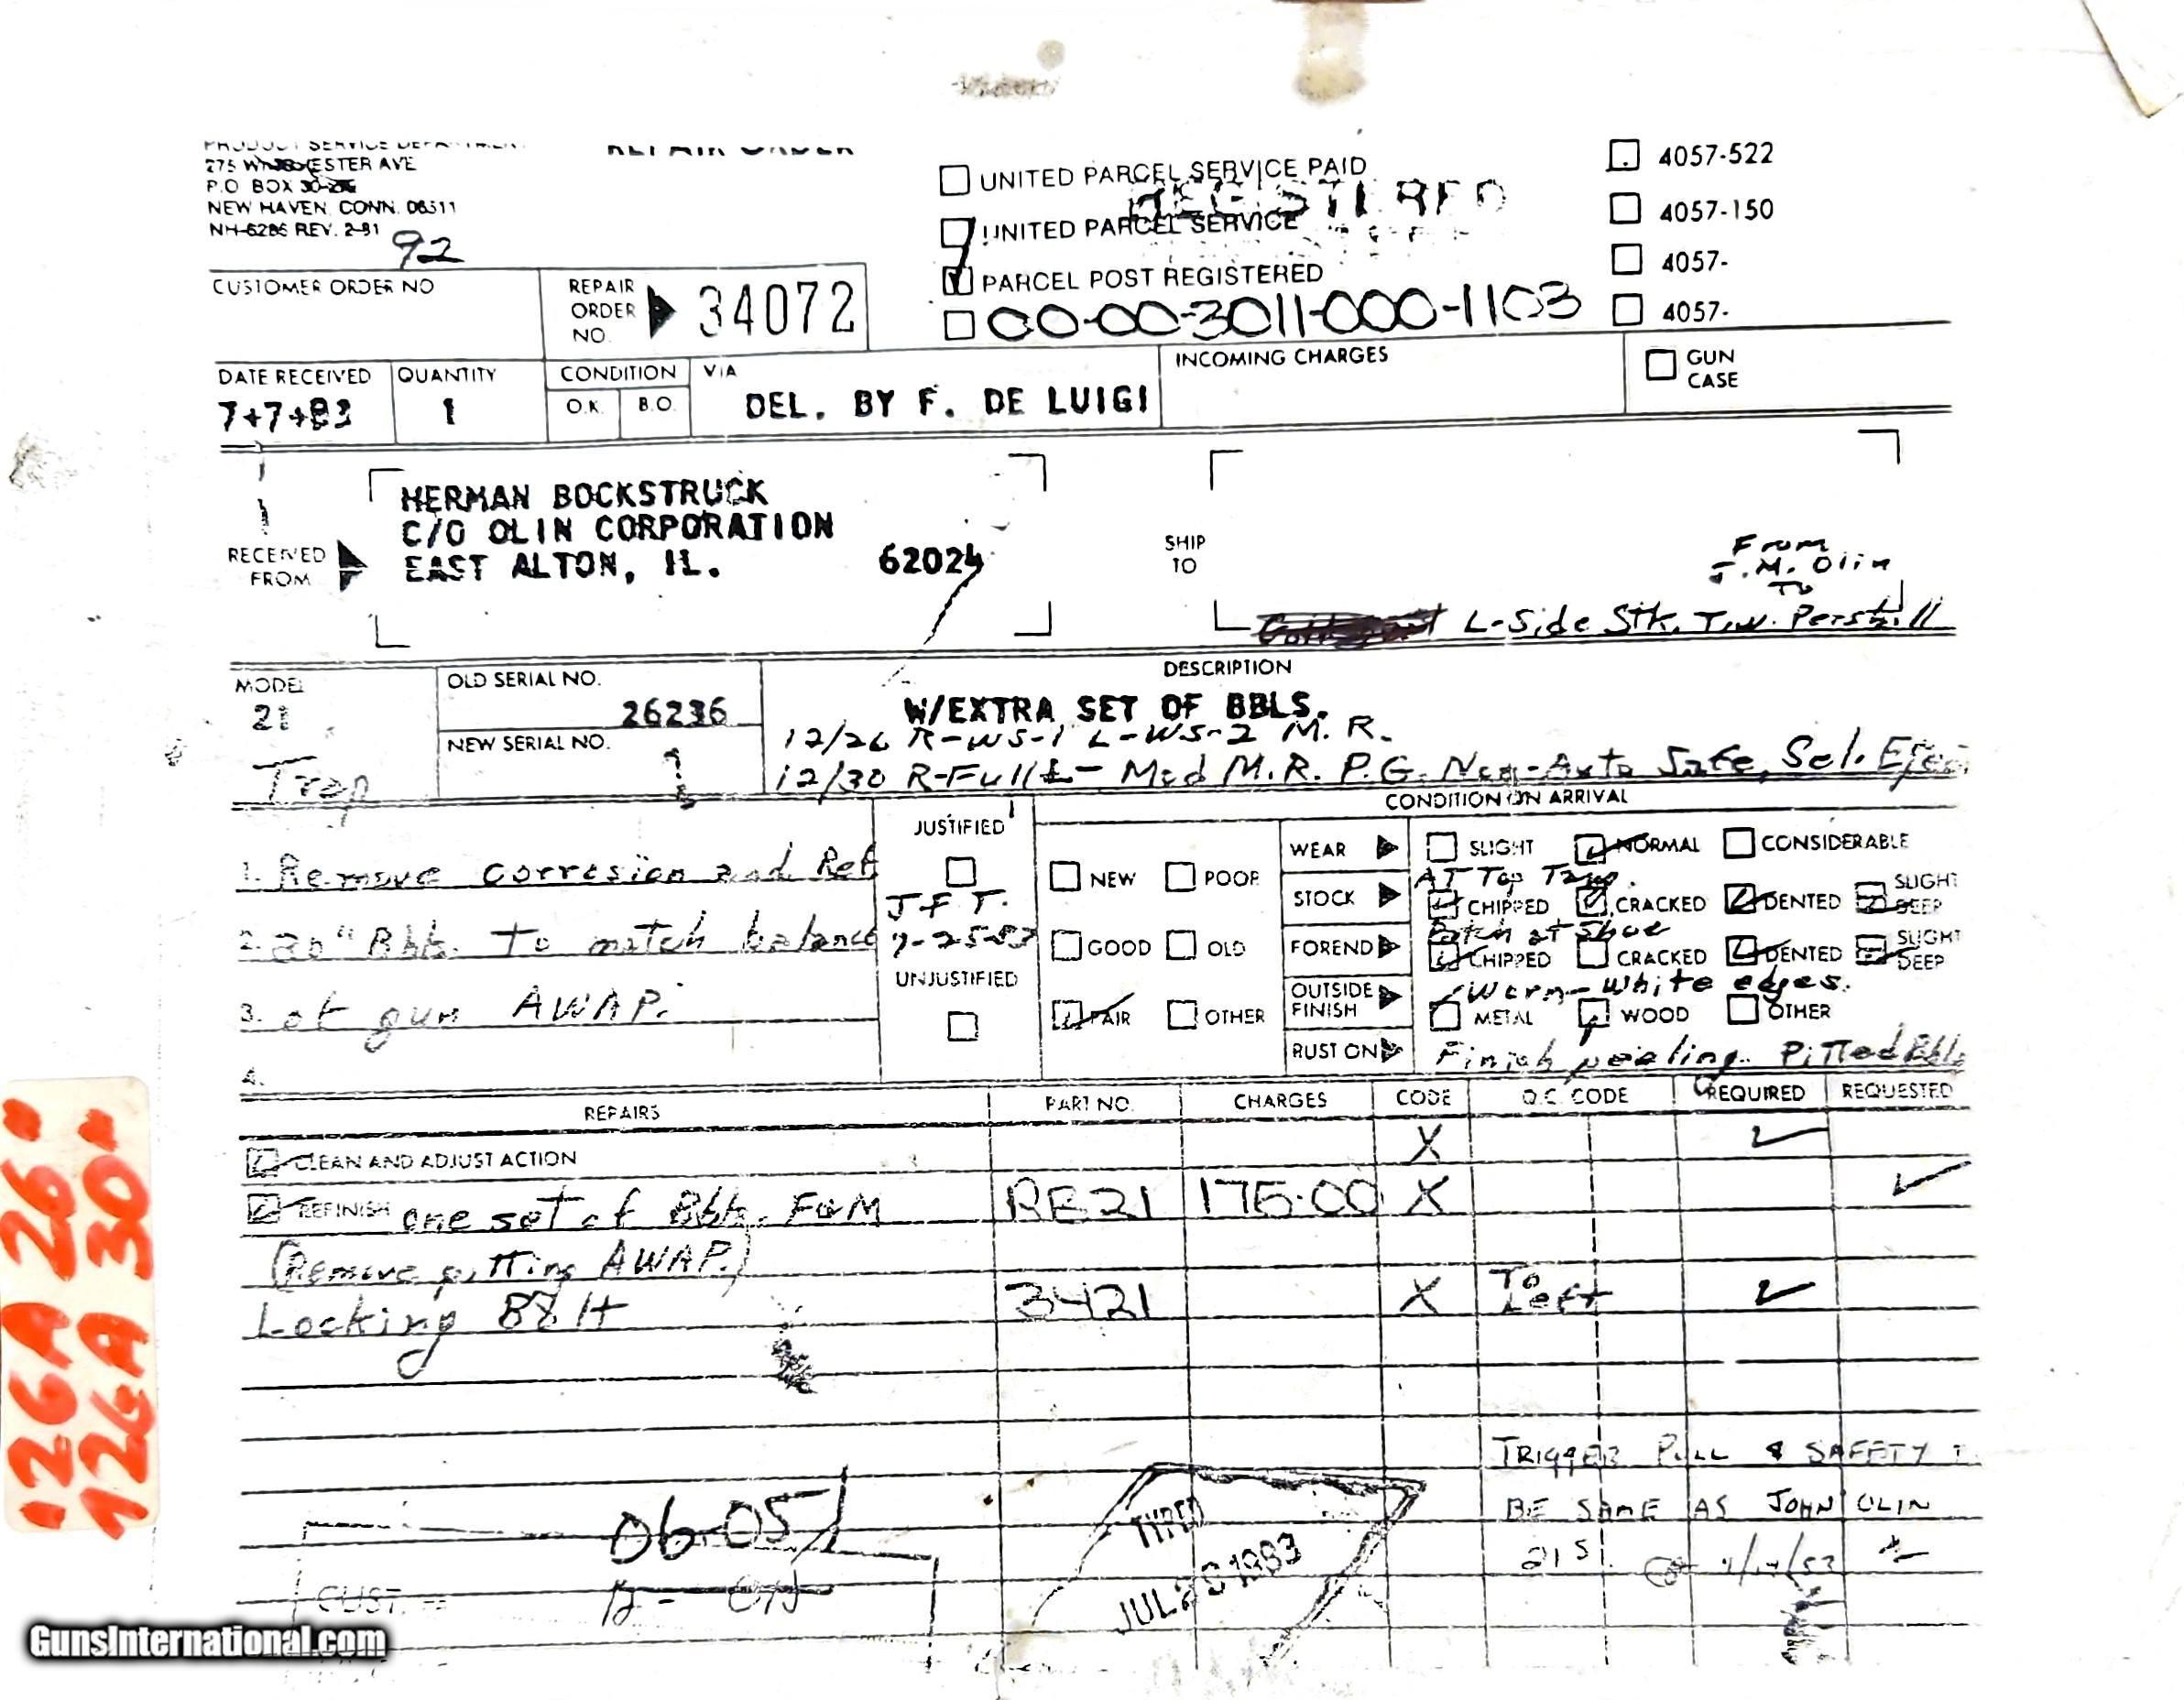 PRODUCT SERVICE DEPARTMENT
REPAIR ORDER
275 WINCHESTER AVE
P.O. BOX
NEW HAVEN, CONN. 06511
NH-6286 REV. 2-81
92
UNITED PARCEL SERVICE PAID
REGISTERED
UNITED PARCEL SERVICE
PARCEL POST REGISTERED
00-00-3011-000-1103
4057-522
4057-150
4057-
4057-
CUSTOMER ORDER NO
REPAIR ORDER NO. 34072
DATE RECEIVED QUANTITY CONDITION VIA INCOMING CHARGES GUN CASE
7+7+83 1 O.K. B.O. DEL. BY F. DE LUIGI
RECEIVED FROM
HERMAN BOCKSTRUCK
C/O OLIN CORPORATION
EAST ALTON, IL. 62024
SHIP TO
From
J.M. Olin
To
L-Side Stk. T.W. Pershill
MODEL OLD SERIAL NO. DESCRIPTION
21 26236 W/EXTRA SET OF BBLS.
NEW SERIAL NO. 12/26 R-WS-1 L-WS-2 M.R.
Trap 12/30 R-Full L- Mod M.R. P.G. Non-Auto Safe, Sel. Ejec
CONDITION ON ARRIVAL
1. Remove corrosion and Ref
2. Bbls. to match balance
3. of gun AWAP.
4.
JUSTIFIED
J F T.
7-25-83
UNJUSTIFIED
NEW POOR
GOOD OLD
FAIR OTHER
WEAR SLIGHT NORMAL CONSIDERABLE
AT Top Tang.
STOCK CHIPPED CRACKED DENTED SLIGHT DEEP
Both at Shoe
FOREND CHIPPED CRACKED DENTED SLIGHT DEEP
Worn-White edges.
OUTSIDE FINISH METAL WOOD OTHER
RUST ON Finish peeling. Pitted Bbls
REPAIRS PART NO. CHARGES CODE Q.C. CODE REQUIRED REQUESTED
CLEAN AND ADJUST ACTION X
REFINISH one set of Bbls. F&M RB21 175.00 X
(Remove pitting AWAP.)
Locking Bolt 3421 X To Left
TRIGGER PULL & SAFETY T
BE SAME AS JOHN OLIN
21S
06-051
CUST.
TYPED
JUL 1983
12GA 26"
12GA 30"
GunsInternational.com